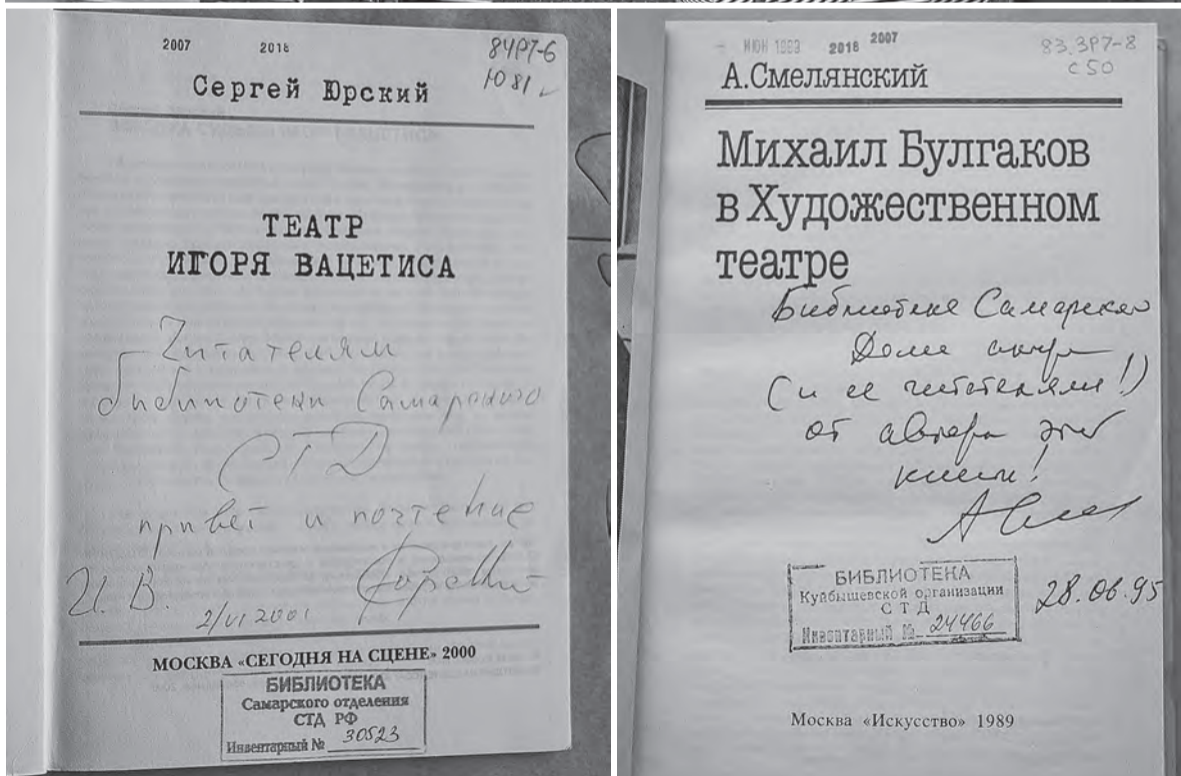 2007 2018
84Р7-6
Ю 81
Сергей Юрский
ТЕАТР
ИГОРЯ ВАЦЕТИСА
Читателям
библиотеки Самарского
СТД
привет и почтение
И. В.
2/VI 2001
МОСКВА «СЕГОДНЯ НА СЦЕНЕ» 2000
БИБЛИОТЕКА
Самарского отделения
СТД РФ
Инвентарный № 30523
ИЮН 1993 2018 2007
83.3Р7-8
С 50
А.Смелянский
Михаил Булгаков
в Художественном
театре
Библиотеке Самарского
Дома актера
(и ее читателям!)
от автора этой
книги!
БИБЛИОТЕКА
Куйбышевской организации
СТД
Инвентарный № 24466
28.06.95
Москва «Искусство» 1989